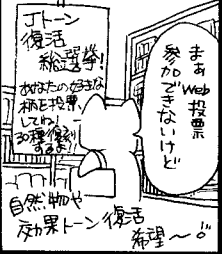 Jトーン
復活
総選挙!
あなたの好きな
柄を投票
してね!
30種復刻
するよ!
まぁ
Web投票
参加できないけど
自然物や
効果トーン復活
希望〜!!